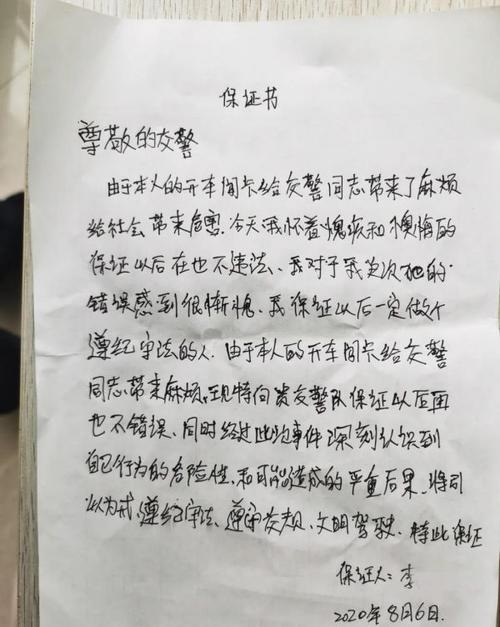 保证书
尊敬的交警
由于本人的开车闯卡给交警同志带来了麻烦
给社会带来危害.今天我怀着愧疚和懊悔的
保证以后在也不违法、我对于我次的
错误感到很惭愧、我保证以后一定做个
遵纪守法的人.由于本人的开车闯卡给交警
同志带来麻烦,现特向贵交警队保证以后再
也不错误、同时经过此次事件深刻认识到
自己行为的危险性,和可能造成的严重后果、将引
以为戒,遵纪守法、遵守交规、文明驾驶、特此保证
保证人:李
2020年8月6日.